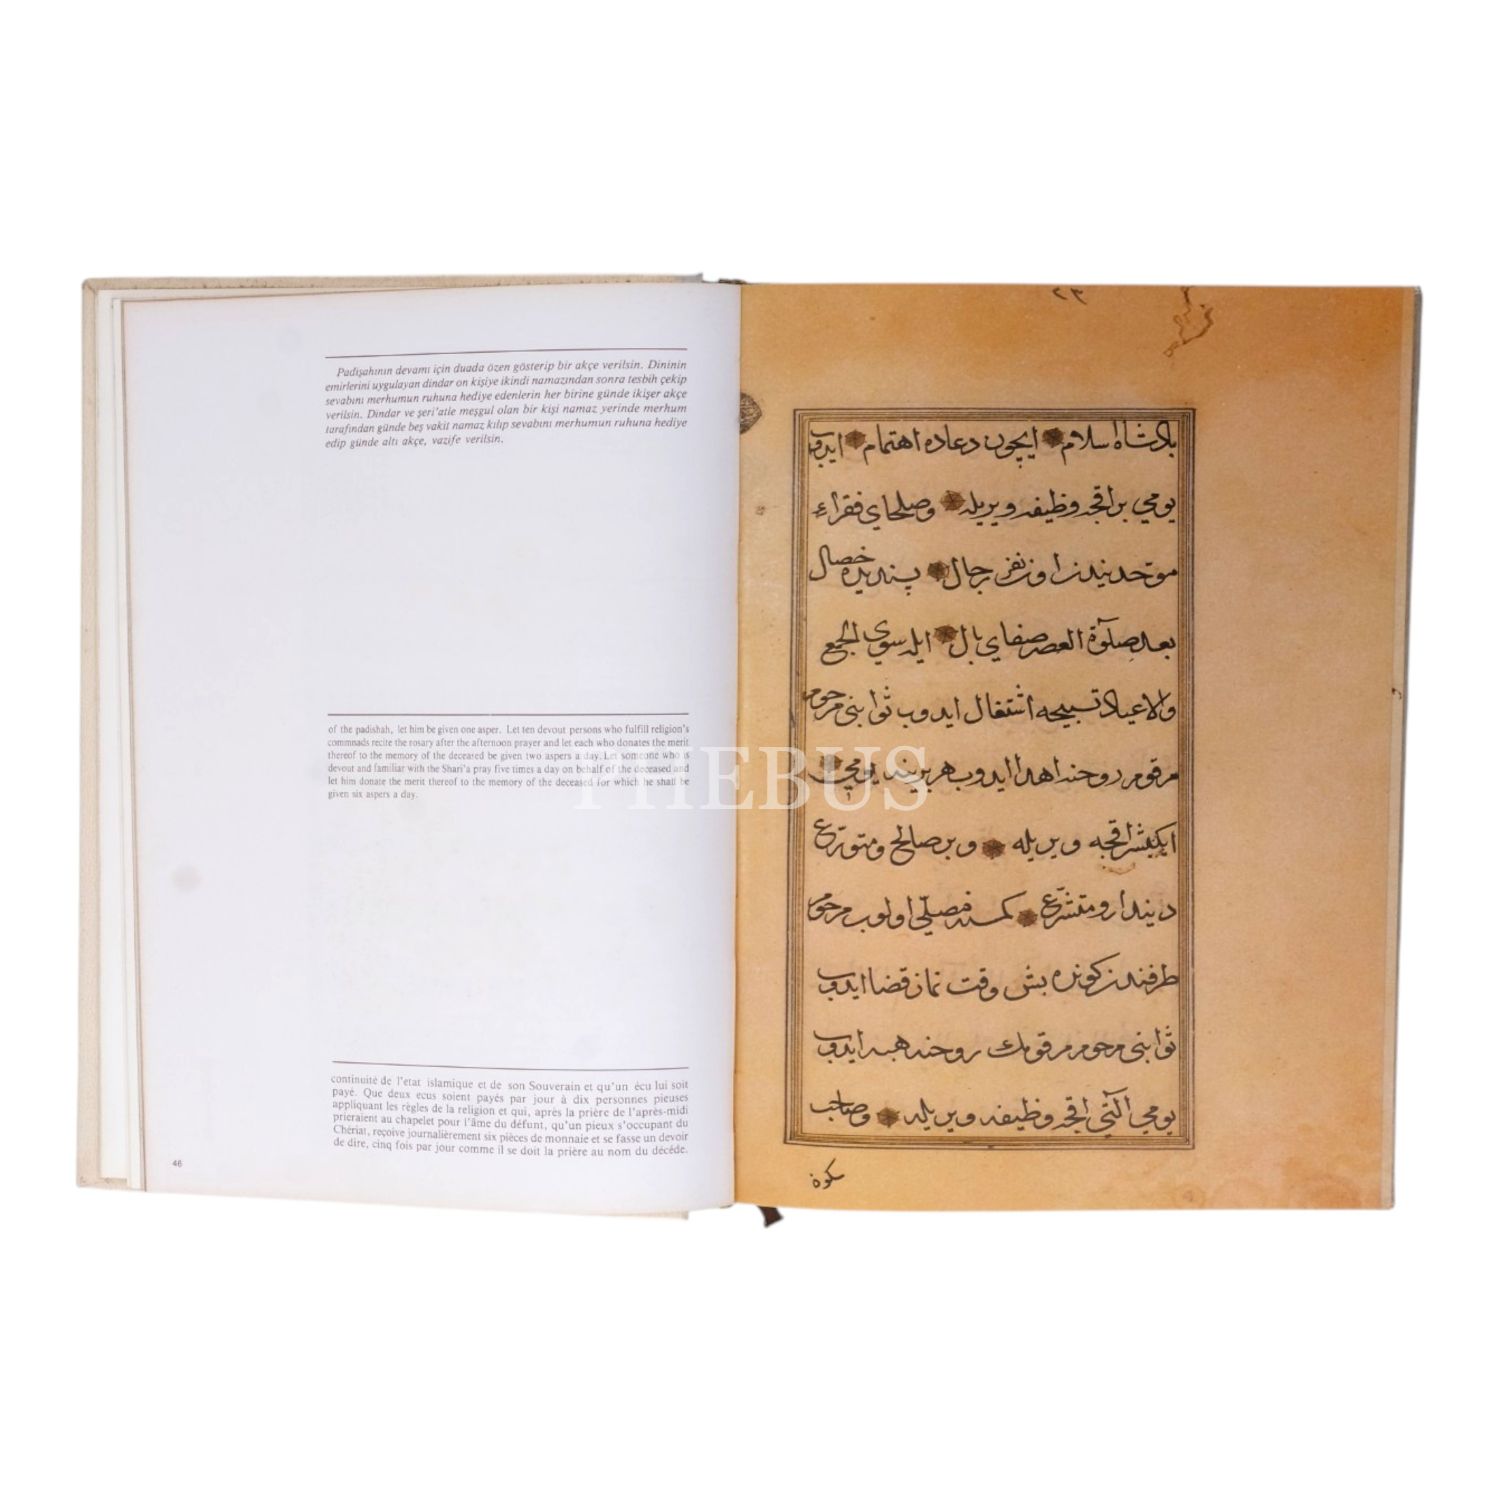 Padişahının devamı için duada özen gösterip bir akçe verilsin. Dininin
emirlerini uygulayan dindar on kişiye ikindi namazından sonra tesbih çekip
sevabını merhumun ruhuna hediye edenlerin her birine günde ikişer akçe
verilsin. Dindar ve şeri'atle meşgul olan bir kişi namaz yerinde merhum
tarafından günde beş vakit namaz kılıp sevabını merhumun ruhuna hediye
edip günde altı akçe, vazife verilsin.
of the padishah, let him be given one asper. Let ten devout persons who fulfill religion's
commnads recite the rosary after the afternoon prayer and let each who donates the merit
thereof to the memory of the deceased be given two aspers a day. Let someone who is
devout and familiar with the Shari'a pray five times a day on behalf of the deceased and
let him donate the merit thereof to the memory of the deceased for which he shall be
given six aspers a day.
continuité de l'etat islamique et de son Souverain et qu'un écu lui soit
payé. Que deux ecus soient payés par jour à dix personnes pieuses
appliquant les règles de la religion et qui, après la prière de l'après-midi
prieraient au chapelet pour l'âme du défunt, qu'un pieux s'occupant du
Chériat, reçoive journalièrement six pièces de monnaie et se fasse un devoir
de dire, cinq fois par jour comme il se doit la prière au nom du décéde.
46
٢٣
پادشاه اسلام ایچون دعاده اهتمام ایدوب
یومی بر اقجه وظیفه ویریله وصلحای فقراء
موحدیندن اون نفر رجال پسندیده خصال
بعد صلوة العصر صفای بال ایله سوی الجمع
والاعیاد تسبیحه اشتغال ایدوب ثوابنی مرحوم
مرقوم روحنه اهدا ایدوب هر برینه یومی
ایکیشر اقجه ویریله وبر صالح ومتورع
دیندار ومتشرع کمسنه مصلی اولوب مرحوم
طرفندن کونده بش وقت نماز قضا ایدوب
ثوابنی مرحوم مرقومك روحنه هبه ایدوب
یومی التی اقجه وظیفه ویریله وصاحب
PHEBUS